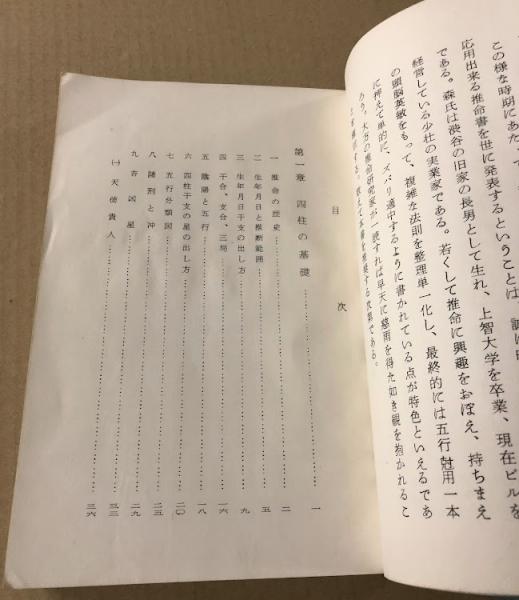 この様な時期にあた
応用出来る推命書を世に発表するということは
である。森氏は渋谷の旧家の長男として生れ、上智大学を卒業、現在ビルを
経営している少壮の実業家である。若くして推命に興趣をおぼえ、持ちまえ
の頭脳英敏をもって、複雑な法則を整理単一化し、最終的には五行尅用一本
に押えて単的に、ズバリ適中するように書かれている点が特色といえるであ
ろう。大方の推命研究家が一読すれば旱天に慈雨を得た如き観を抱かれるこ
目次
第一章 四柱の基礎 一
一 推命の歴史 二
二 生年月日と推断範囲 五
三 生年月日干支の出し方 九
四 干合、支合、三局 一六
五 陰陽と五行 一八
六 四柱干支の星の出し方 二〇
七 五行分類図 二五
八 陣刑と冲 二九
九 吉凶星 三三
㈠ 天徳貴人 三六